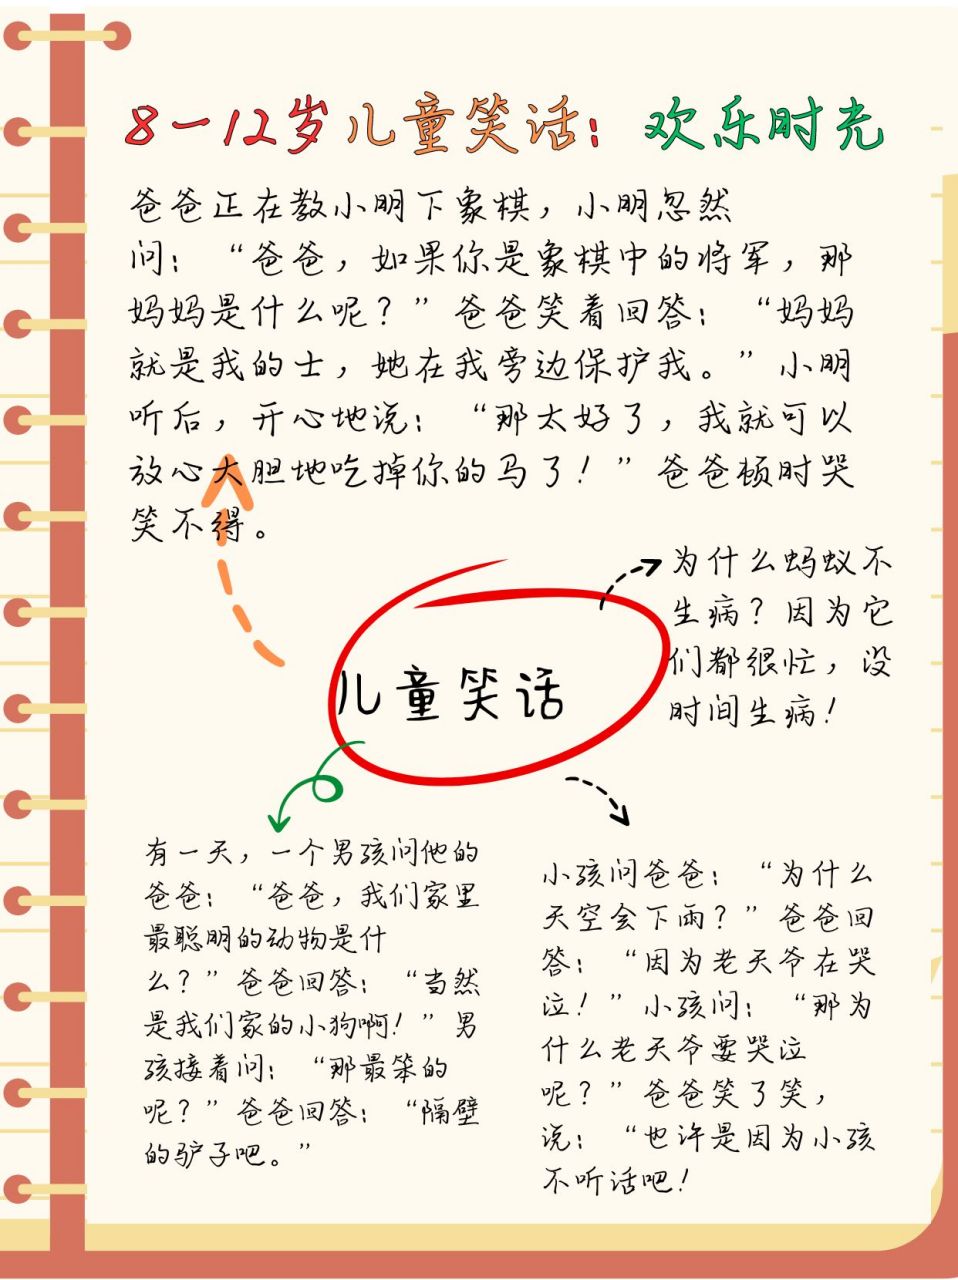 8一12岁儿童笑话：欢乐时光
爸爸正在教小明下象棋，小明忽然
问：“爸爸，如果你是象棋中的将军，那
妈妈是什么呢？”爸爸笑着回答：“妈妈
就是我的士，她在我旁边保护我。”小明
听后，开心地说：“那太好了，我就可以
放心大胆地吃掉你的马了！”爸爸顿时哭
笑不得。
为什么蚂蚁不
生病？因为它
们都很忙，没
时间生病！
儿童笑话
有一天，一个男孩问他的
爸爸：“爸爸，我们家里
最聪明的动物是什
么？”爸爸回答：“当然
是我们家的小狗啊！”男
孩接着问：“那最笨的
呢？”爸爸回答：“隔壁
的驴子吧。”
小孩问爸爸：“为什么
天空会下雨？”爸爸回
答：“因为老天爷在哭
泣！”小孩问：“那为
什么老天爷要哭泣
呢？”爸爸笑了笑，
说：“也许是因为小孩
不听话吧！